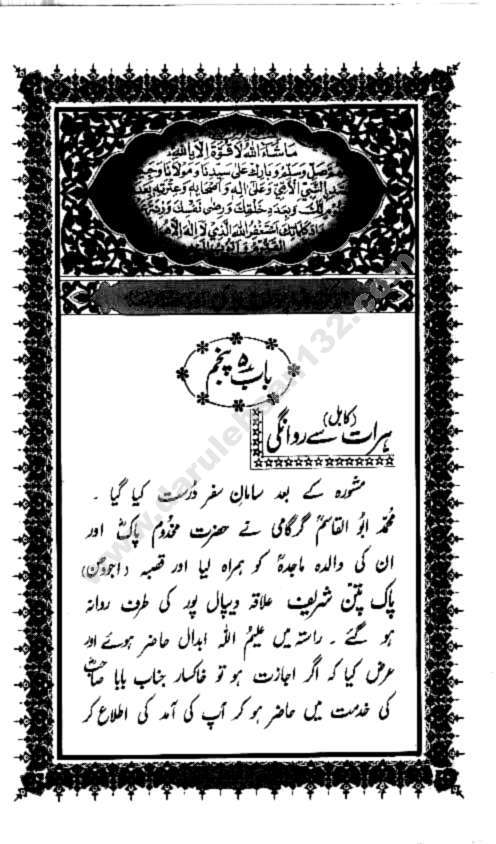 ماشاء الله لا قوة الا بالله
وصل وسلم وبارك على سيدنا ومولانا
النبي الأمي وعلى اله واصحابه وعترته بعدد
وبعدد خلقك ورضى نفسك وزنة
استغفر الله الذي لا اله الا هو
باب ۵ پنجم
ہرات (کابل) سے روانگی
مشورہ کے بعد سامانِ سفر دُرست کیا گیا ۔
محمد ابو القاسمؒ گرگامی نے حضرت مخدوم پاکؒ اور
ان کی والدہ ماجدہؒ کو ہمراہ لیا اور قصبہ (اجودھن)
پاک پتن شریف علاقہ دیپال پور کی طرف روانہ
ہو گئے ۔ راستہ میں علیمُ اللہ ابدال حاضر ہوئے اور
عرض کیا کہ اگر اجازت ہو تو خاکسار جناب بابا صاحبؒ
کی خدمت میں حاضر ہو کر آپ کی آمد کی اطلاع کر